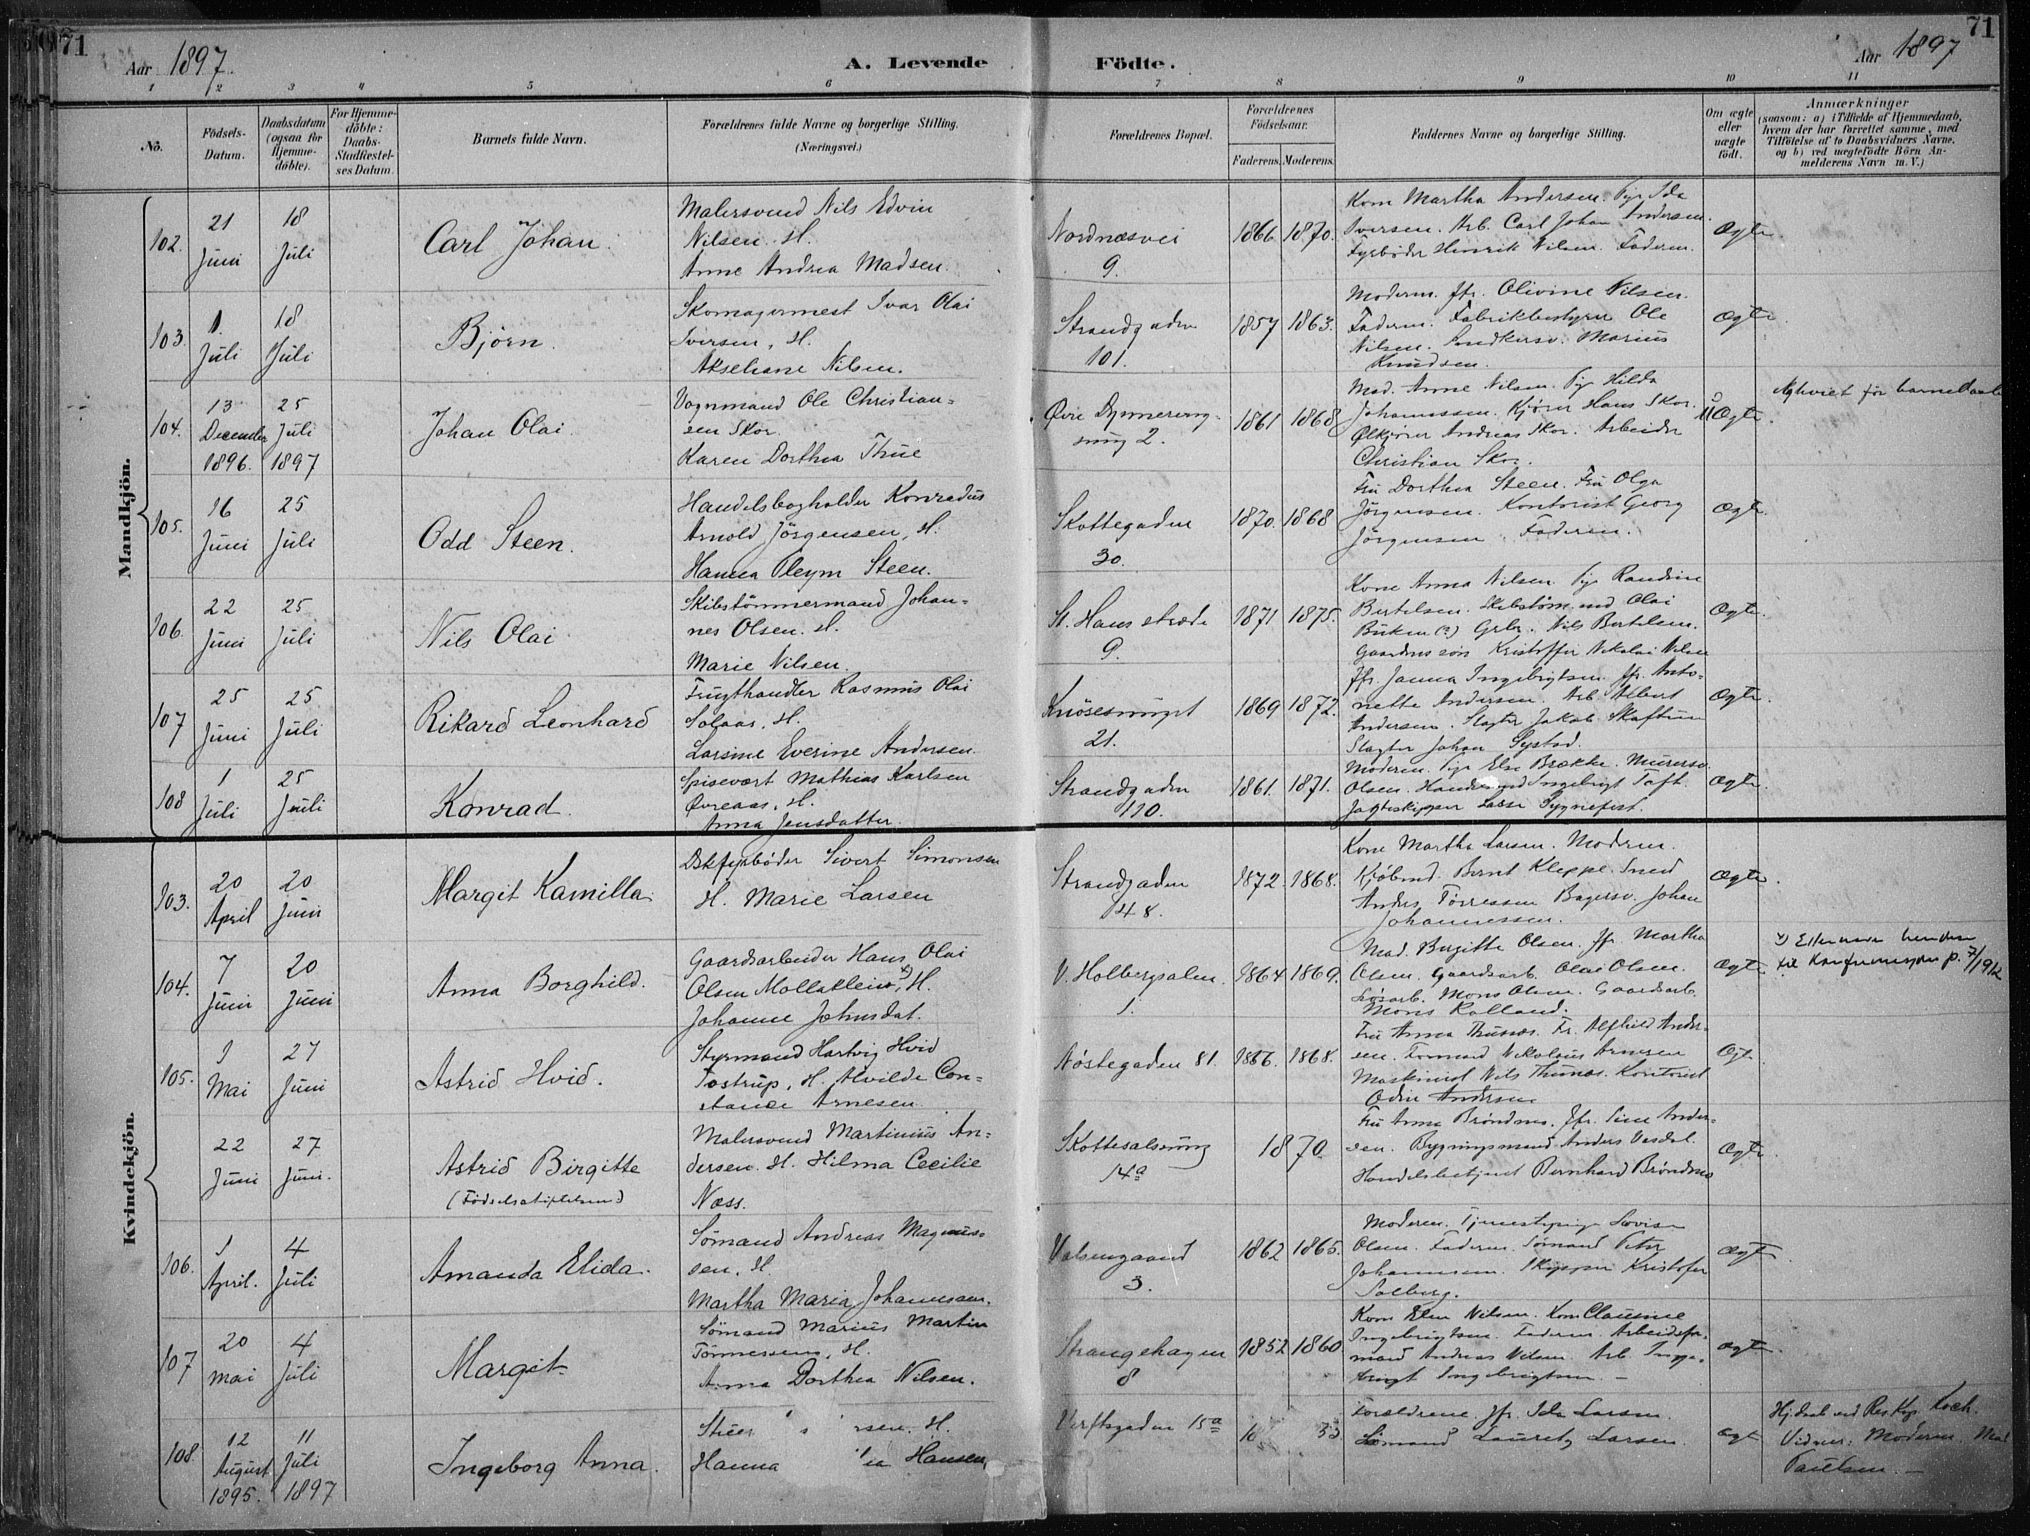 71
Aar 1897.
A. Levende
Födte.
Aar 1897
71
1 2 3 4 5 6 7 8 9 10 11
No.
Födsels-
Datum.
Daabsdatum
(ogsaa for
Hjemme-
döbte).
For Hjemme-
döbte:
Daabs-
Stadfæstel-
ses Datum.
Barnets fulde Navn.
Forældrenes fulde Navne og borgerlige Stilling.
(Næringsvei.)
Forældrenes Bopæl.
Forældrenes
Födselsaar.
Faderens. Moderens.
Faddernes Navne og borgerlige Stilling.
Om ægte
eller
uægte
født.
Anmærkninger
(saasom: a) i Tilfælde af Hjemmedaab,
hvem der har forrettet samme, med
Tilföielse af to Daabsvidners Navne,
og b) ved uægtefödte Börn An-
melderens Navn m. V.)
Mandkjön.
102.
21
Juni
18
Juli
Carl Johan.
Malersvend Nils Edvin
Nilsen. H.
Anne Andrea Madsen.
Nordnæsvei
9.
1866 1870.
Kone Martha Andersen. Pige Ida
Iversen. Arb. Carl Johan Andersen.
Fyrbøder Henrik Nilsen. Faderen.
Ægte
103.
1.
Juli
18
Juli
Bjørn.
Skomagermest Ivar Olai
Iversen, H.
Akseliane Nilsen.
Strandgaden
101.
1857 1863.
Moderen. Jfr. Olivine Nilsen.
Faderen. Fabrikbestyrer Ole
Nilsen. Marius
Knudsen.
Ægte
104.
13
December
1896.
25
Juli
1897
Johan Olai.
Vognmand Ole Christian-
sen Skor.
Karen Dorthea Thue
Øvre
2.
1861 1868
Mad. Anne Nilsen. Pige Hilda
Johannessen. Kjører Hans Skor.
Ølkjører Andreas Skor. Arbeider
Christian Skor.
Ægte.
Ægteviet før barnedaab
105.
16
Juni
25
Juli
Odd Steen.
Handelsbogholder Konradus
Arnold Jörgensen, H.
Hanna Pleym Steen.
Skottegaden
30.
1870. 1868
Fru Dorthea Steen. Fru Olga
Jörgensen. Kontorist Georg
Jörgensen. Faderen.
Ægte.
106.
22
Juni
25
Juli
Nils Olai
Skibstömmermand Johan-
nes Olsen. H.
Marie Nilsen.
St. Hans stræde
9.
1871 1875.
Kone Anna Nilsen. Pige Randine
Bertelsen. Skibstöm.md Olai
Büken (?) Grbr. Nils Bertelsen.
Gaardmssön Kristoffer Nikolai Nilsen
Ægte.
107
25
Juni
25
Juli
Rikard Leonhard
Frugthandler Rasmus Olai
Solaas, H.
Larsine Everine Andersen.
Knösesmuget
21.
1869 1872.
Jfr. Janna Ingebrigtsen. Jfr. Anto-
nette Andersen. Arb. Albert
Andersen. Slagter Jakob Skaftun
Slagter Johan Systad.
Ægte.
108
1
Juli
25
Juli
Konrad.
Spisevært Mathias Karlsen
Øvreaas, H.
Anna Jensdatter.
Strandgaden
110.
1861. 1871.
Moderen. Pige Else Brække. Murersv.
Olsen. Ingebrigt Toft.
Jagteskipper Lasse Sygnefest.
Ægte.
Kvindekjön.
103.
20
April
20
Juni
Margit Kamilla.
Dskfyrbøder Sivert Simonsen
H. Marie Larsen
Strandgaden
148.
1872. 1868.
Kone Martha Larsen. Moderen.
Kjöbmd. Bernt Kleppe. Smed
Anders Torressen Bagersv. Johan
Johannessen.
Ægte.
104.
7
Juni
20
Juni
Anna Borghild.
Gaardsarbeider Hans Olai
Olsen Mollaklein x), H.
Johanne Johnsdat.
V. Holbergsalm.
1.
1864 1869.
Mad. Birgitte Olsen. Jfr Martha
Olsen. Gaardsarb. Olai Olsen.
Løsarb. Mons Olsen. Gaardsarb.
Mons Rolland.
Ægte.
x) Efternavn
til Konfirmasjon p. 7/1912
105.
1
Mai
27
Juni
Astrid Hvid.
Styrmand Hartvig Hvid
Tostrup, H. Alvilde Con-
stance Arnesen.
Nöstegaden 81.
1866. 1868.
Fru Anna Thunæs. Fr. Alfhild Ander-
sen. Formand Nikolaus Arnesen
Maskinist Nils Thunæs. Kontorist
Odin Andersen
Ægte
22
Juni
27
Juni.
Astrid Birgitte
(Födselsstiftelsen)
Malersvend Martinius An-
dersen. H. Hilma Cecilie
Næss.
Skottesalmning
14a
1870.
Fru Anna Bröndmo. Jfr. Sine Ander-
sen. Bygningsmand Anders Vasdal.
Handelsbetjent Bernhard Bröndmo
Ægte.
106.
1
April.
4
Juli
Amanda Elida.
Sömand Andreas Magnus-
sen. H.
Martha Maria Johannesen.
3.
1862 1865.
Moderen. Tjenestepige Lovise
Olsen. Faderen. Sömand Peter
Johannesen. Skipper Kristofer
Solberg.
Ægte
107
20
Mai
4
Juli
Margit.
Sömand Marius Martin
Tönnessen, H.
Anna Dorthea Nilsen.
Strangehagen
8
1852 1860
Kone Elen Nilsen. Kone Clausine
Ingebrigtsen. Faderen. Arbeidsfor-
mand Andreas Nilsen. Arb. Inge-
brigt Ingebrigtsen. —
Ægte.
108.
12
August
1895.
11
Juli
1897
Ingeborg Anna.
H.
Hanna Hansen,
Verftsgaden 15a
Forældrene. Jfr. Ida Larsen.
Sömand Lauretz Larsen.
Ægt
Hj.daab ved Res. Kap. Koch.
Vidner: Moderen. Mad.
Paulsen. —